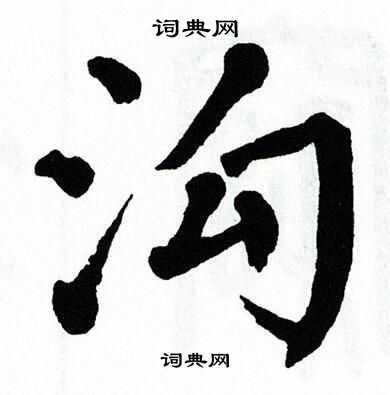 词典网
沟
词典网